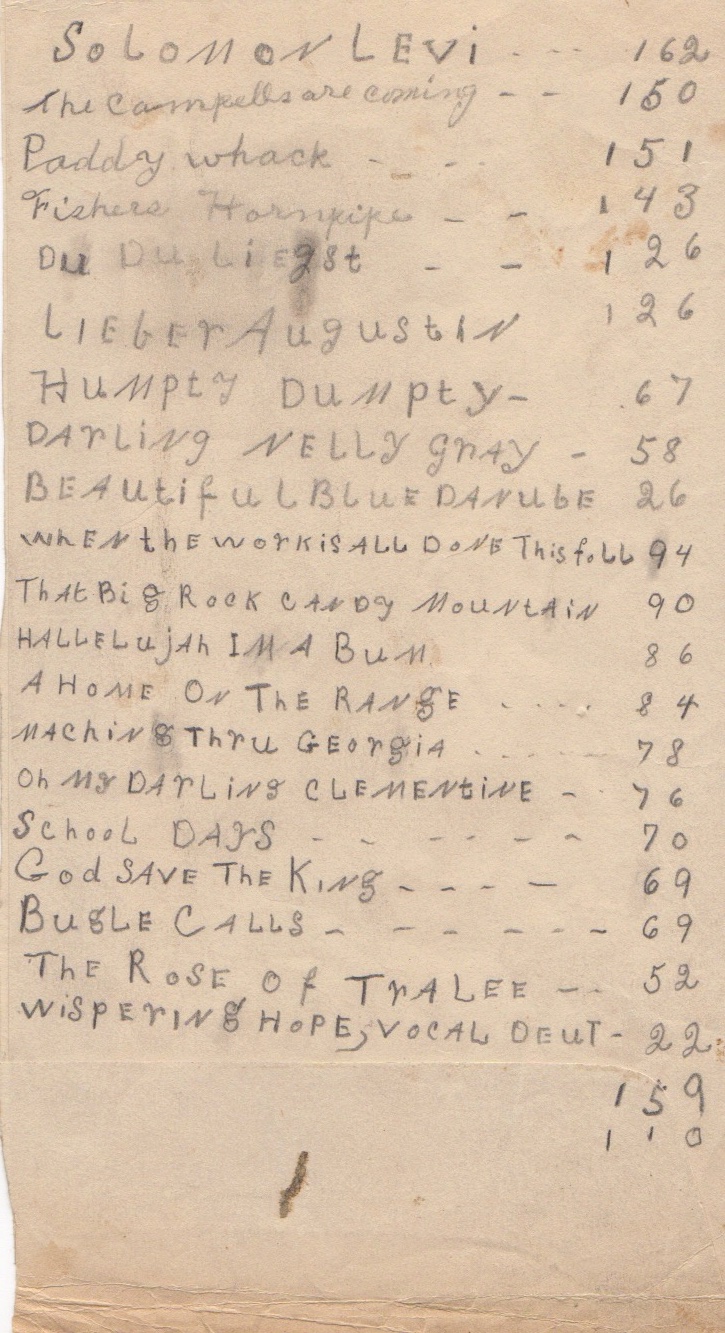 SoLoMoN LEVi - -- 162
The Campells are coming - - 150
Paddy whack - - - 151
Fishers Hornpipe - - 143
Du Du LiEgst - - 126
LIEbErAugustiN 126
HuMptY DuMpty- 67
DArLiNg NELLY grAY - 58
BEAutifuLBLuEDANubE 26
whEN thE workisALL DoNE This fall 94
ThAtBig RocK CANDy MouNtAiN 90
HALLELujAh IM A BuM 86
A HoME ON ThE RANgE .... 84
MAChiNg Thru GEorgiA ..... 78
Oh My DArLiNg CLEMENtiNE - 76
SchooL DAYS - - - - - - 70
God SAVE ThE KiNg - - - - 69
BugLE CALLS - - - - - - 69
ThE RoSE Of TrALEE -- - 52
WiSpEriNg HOPE, VoCAL DEuT - 22
159
110